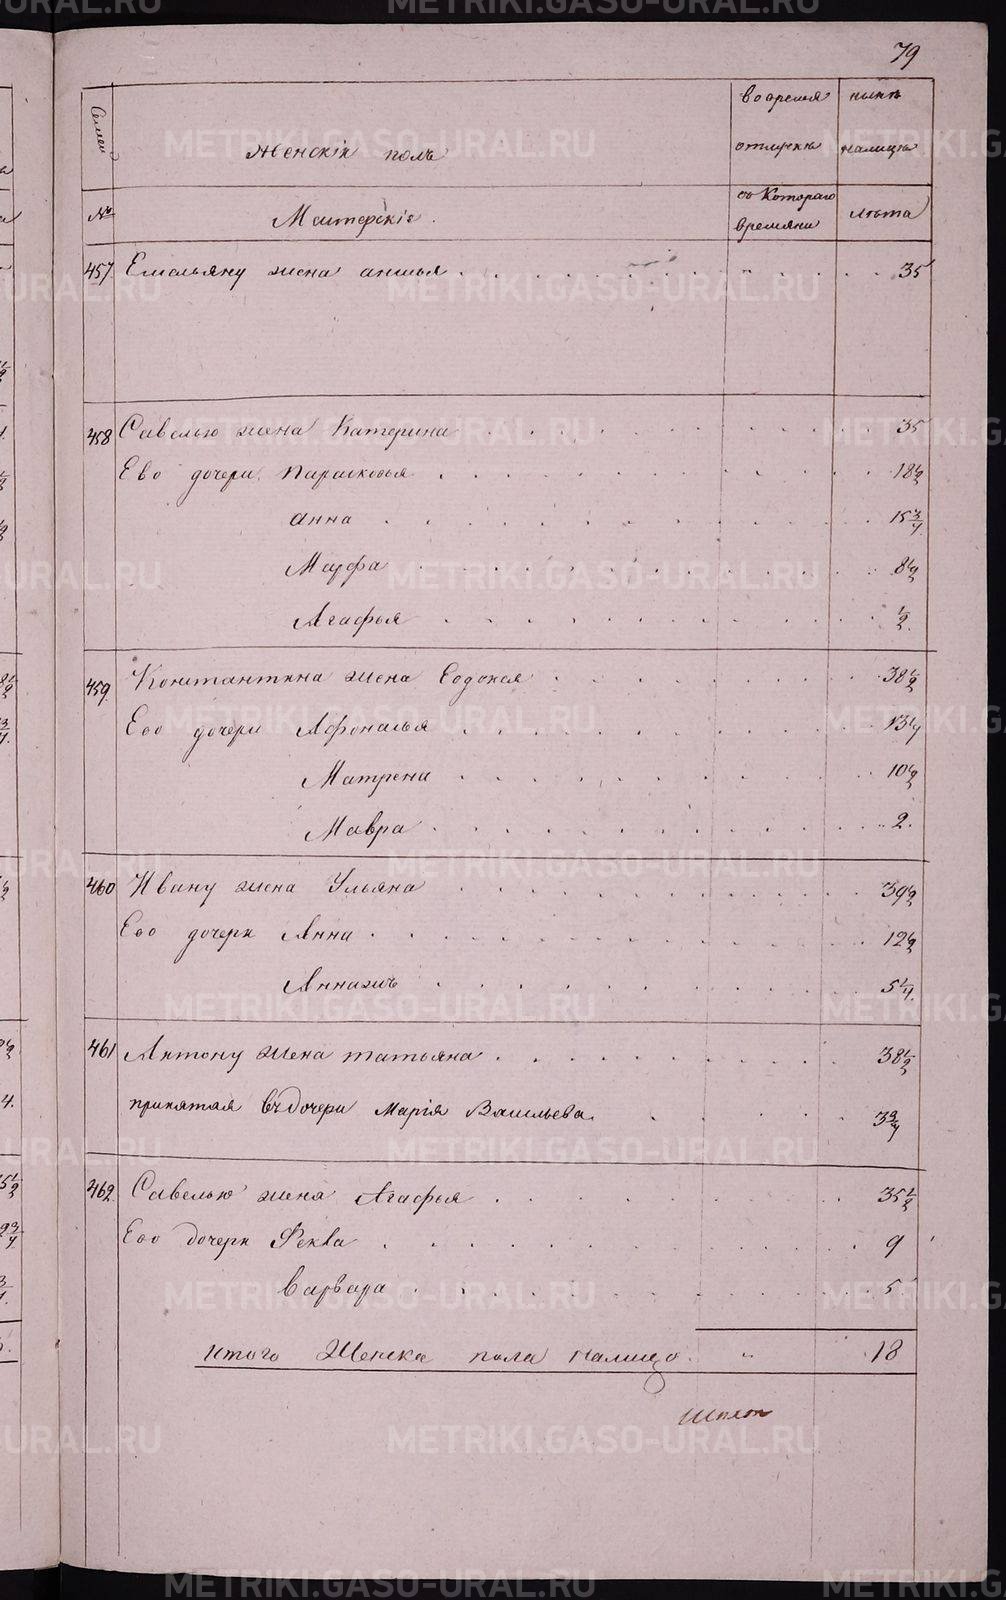 79
Семей
Женскiй полъ
во время
отлучки
нынѣ
налицо
№
Мастерскiе.
съ Котораго
времяни
лѣта
457 Емельяну жена анисья 35
458 Савелью жена Катерина 35
Ево дочери Парасковья 18 1/2
анна 15 3/4
Марфа 8 1/2
Агафья 1/2
459 Константина жена Евдокея 38 1/2
Ево дочери Афонасья 13 1/4
Матрена 10 1/2
Мавра 2
460 Ивану жена Ульяна 39 1/2
Ево дочери Анна 12 1/2
Анна жъ 5 1/4
461 Антону жена татьяна 38 1/2
принятая въ дочери Марiя Васильева 3 3/4
462 Савелью жена Агафья 35 1/2
Ево дочери Фекла 9
Варвара 5
итого Женска пола налицо " 18
METRIKI.GASO-URAL.RU